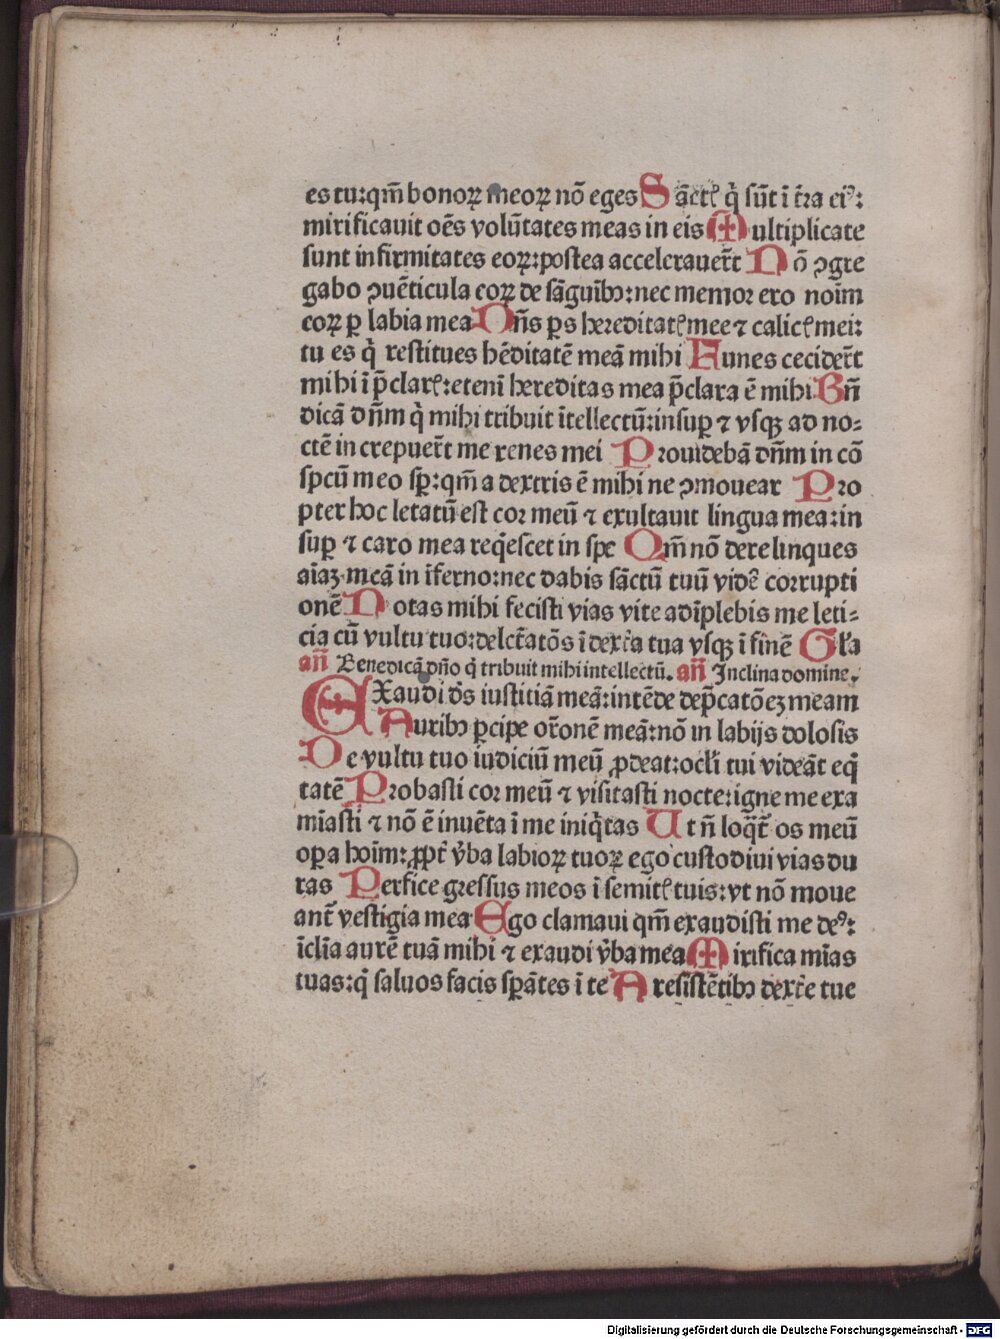 es tu:qm̄ bonoꝝ meoꝝ nō eges Sāctꝭ q̇ sūt ī t̄ra eiꝰ:
mirificauit oēs volūtates meas in eis Multiplicate
sunt infirmitates eoꝝ:postea accelerauer̄t Nō ꝯgre
gabo ꝯuēticula eoꝝ de sāguībꝫ:nec memor ero noīm
eoꝝ ꝑ labia mea Dn̄s ꝑs hereditatꝭ mee ⁊ calicꝭ mei:
tu es q̇ restitues hēditatē meā mihi Funes cecider̄t
mihi ī p̄clarꝭ:etenī hereditas mea p̄clara ē mihi Bn̄
dicā dn̄m q̇ mihi tribuit ītellectū:insuꝑ ⁊ vsqꝫ ad no⸗
ctē increpuer̄t me renes mei Prouidebā dn̄m in cō
spcū meo sꝑ:qm̄ a dextris ē mihi ne ꝯmouear Pro
pter hoc letatū est cor meū ⁊ exultauit lingua mea:in
suꝑ ⁊ caro mea req̇escet in spe Qm̄ nō derelinques
aīaꝫ meā in īferno:nec dabis sāctū tuū vidē corrupti
onē Notas mihi fecisti vias vite adīplebis me leti⸗
cia cū vultu tuo:delct̄atōs ī dext̄a tua vsqꝫ ī finē Gl̄a
an̄ Benedicā dn̄o q̇ tribuit mihi intellectū. an̄ Inclina domine.
EXaudi dꝰs iustitiā meā:intēde dep̄catōeꝫ meam
Auribꝫ ꝑcipe or̄onē meā:nō in labijs dolosis
De vultu tuo iudiciū meū ꝓdeat:ocl̄i tui videāt eq̇
tatē Probasti cor meū ⁊ visitasti nocte:igne me exa
miasti ⁊ nō ē inuēta ī me iniq̇tas Ut n̄ loq̄t̄ os meū
oꝑa hoīm:ꝓpt̄ v̄ba labioꝝ tuoꝝ ego custodiui vias du
ras Perfice gressus meos ī semitꝭ tuis:vt nō moue
ant̄ vestigia mea Ego clamaui qm̄ exaudisti me deꝰ:
īclīa aurē tuā mihi ⁊ exaudi v̄ba mea Mirifica mīas
tuas:q̇ saluos facis sꝑātes ī te A resistētibꝫ dext̄e tue
Digitalisierung gefördert durch die Deutsche Forschungsgemeinschaft - DFG